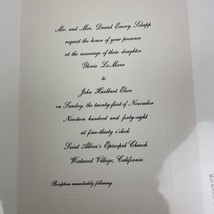 Mr. and Mrs. Daniel Emery Schopp
request the honor of your presence
at the marriage of their daughter
Gloria LaMere
to
John Hurlbut Eber
on Sunday, the twenty first of November
Nineteen hundred and forty-eight
at four-thirty o'clock
Saint Alban's Episcopal Church
Westwood Village, California
Reception immediately following